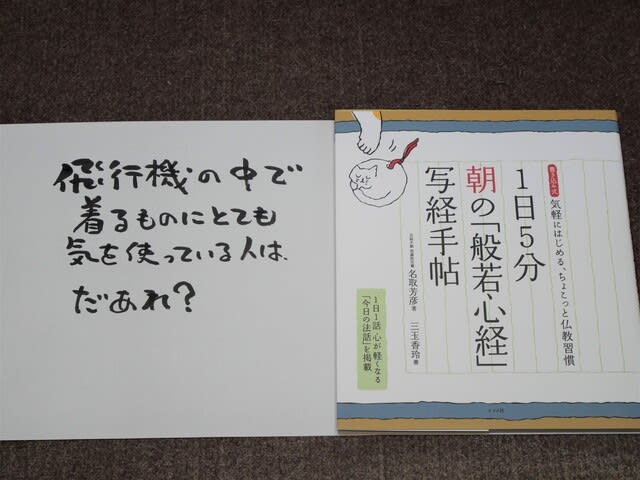 飛行機の中で
着るものにとても
気を使っている人は、
だあれ？
書き込み式
気軽にはじめる、ちょこっと仏教習慣
1日5分
朝の「般若心経」
写経手帖
名取芳彦 著
三玉香玲 書
1日1話 心が軽くなる
「今日の法話」を掲載
ナツメ社